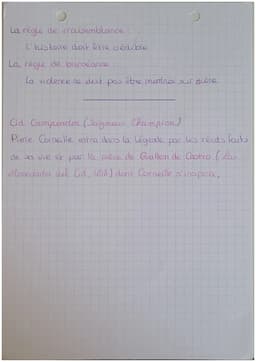 La règle de vraisemblance :
L'histoire doit être crédible
La règle de bienséance :
La violence ne doit pas être montrée sur scène.
Cid Campeador (Seigneur Champion)
Pierre Corneille entra dans la légende par les récits faits
de son vivant et par la pièce de Guillen de Castro (Las
Mocedades del Cid, 1618) dont Corneille s'inspira.